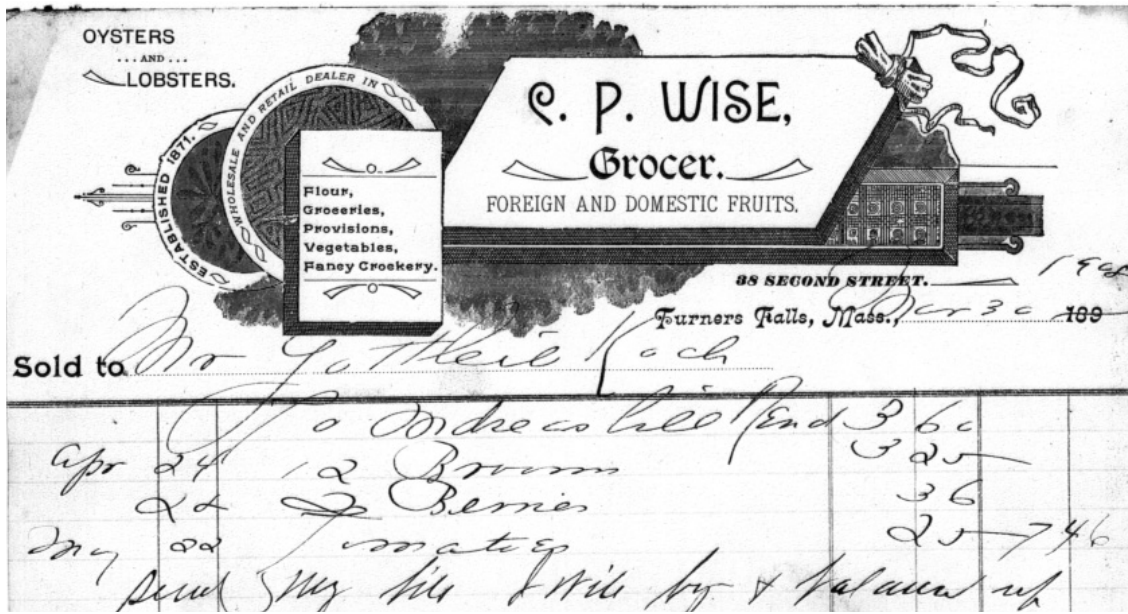 OYSTERS
...AND...
LOBSTERS.
ESTABLISHED 1871.
WHOLESALE AND RETAIL DEALER IN
Flour,
Groceries,
Provisions,
Vegetables,
Fancy Crockery.
C. P. WISE,
Grocer.
FOREIGN AND DOMESTIC FRUITS.
38 SECOND STREET.
Turners Falls, Mass., Mar 30 189
Sold to Mr Gottlieb Koch
To 3 60
Apr 24 12 Brooms 3 25
24 Berries 36
May 22 Tomatoes 25 7 46
Send my bill I will by & balance up